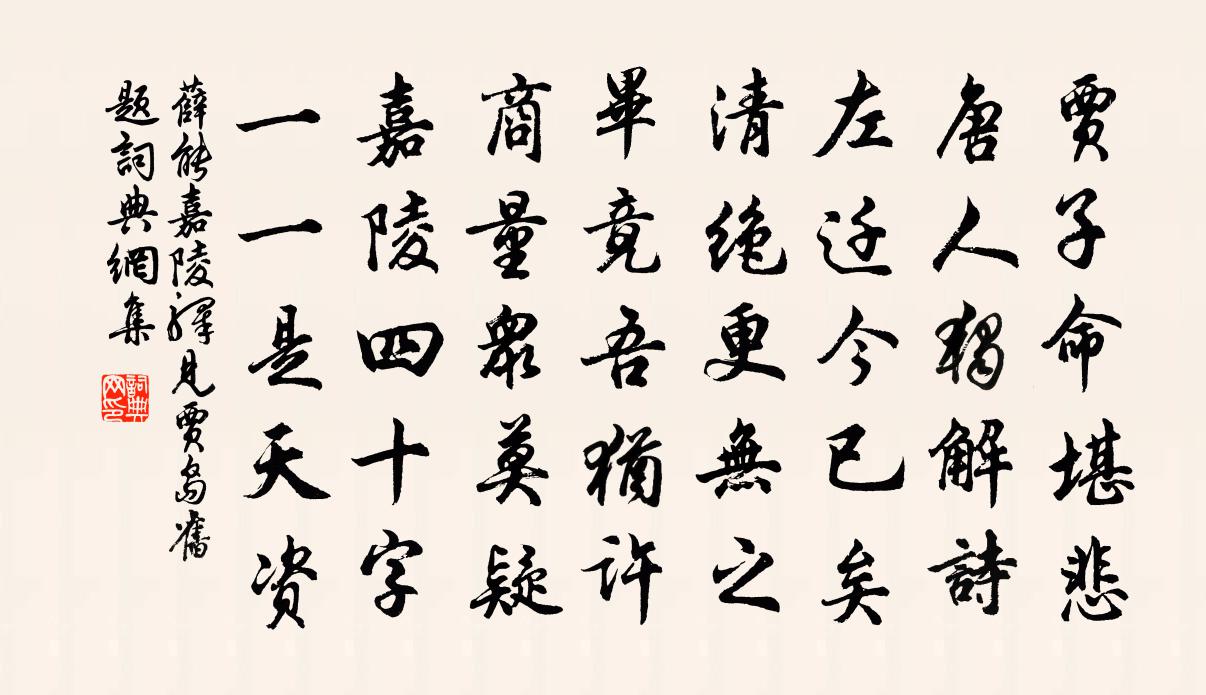 賈子命堪悲
唐人獨解詩
左迁今已矣
清绝更無之
畢竟吾猶许
商量衆莫疑
嘉陵四十字
一一是天资
薛能嘉陵驛見賈島舊
題詞典網集
詞典
网印